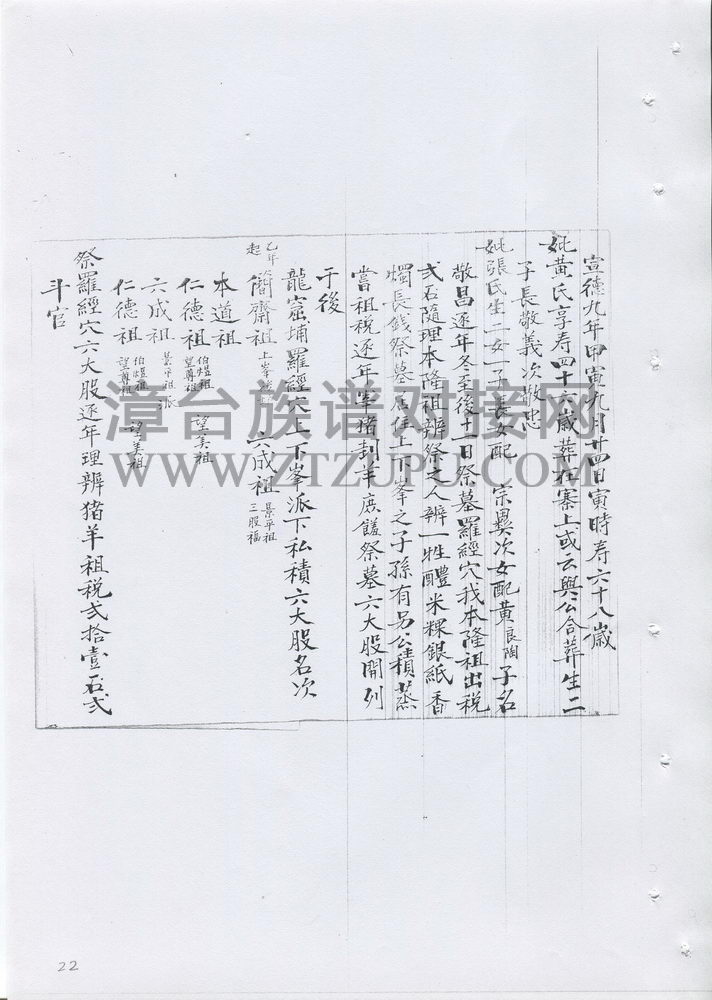 宣德九年甲寅九月廿四日寅時寿六十八歲
妣黃氏享寿四十六歲葬在寨上或云與公合葬生二
子長敬義次敬忠
妣張氏生二女一子長女配 宗異次女配黃良陶子名
敬昌逐年冬至後十一日祭墓羅經穴我本隆祖出税
弍石隨理本隆祖辨祭之人辨一牲醴米粿銀紙香
燭長錢祭墓居住上下峯之子孫有另公積蒸
嘗祖税逐年宰猪刲羊庶饈祭墓六大股開列
于後
龍窟埔羅經穴上下峯派下私積六大股名次
乙年起 簡齋祖 上峯 六成祖 景平祖 三股福
本道祖
仁德祖 伯煜祖 望尊祖 望美祖
六成祖 景平祖 派
仁德祖 伯煜祖 望尊祖 望美祖
祭羅經穴六大股逐年理辨猪羊祖税弍拾壹石弍
斗官
漳台族谱对接网
WWW.ZTZUPU.COM
22